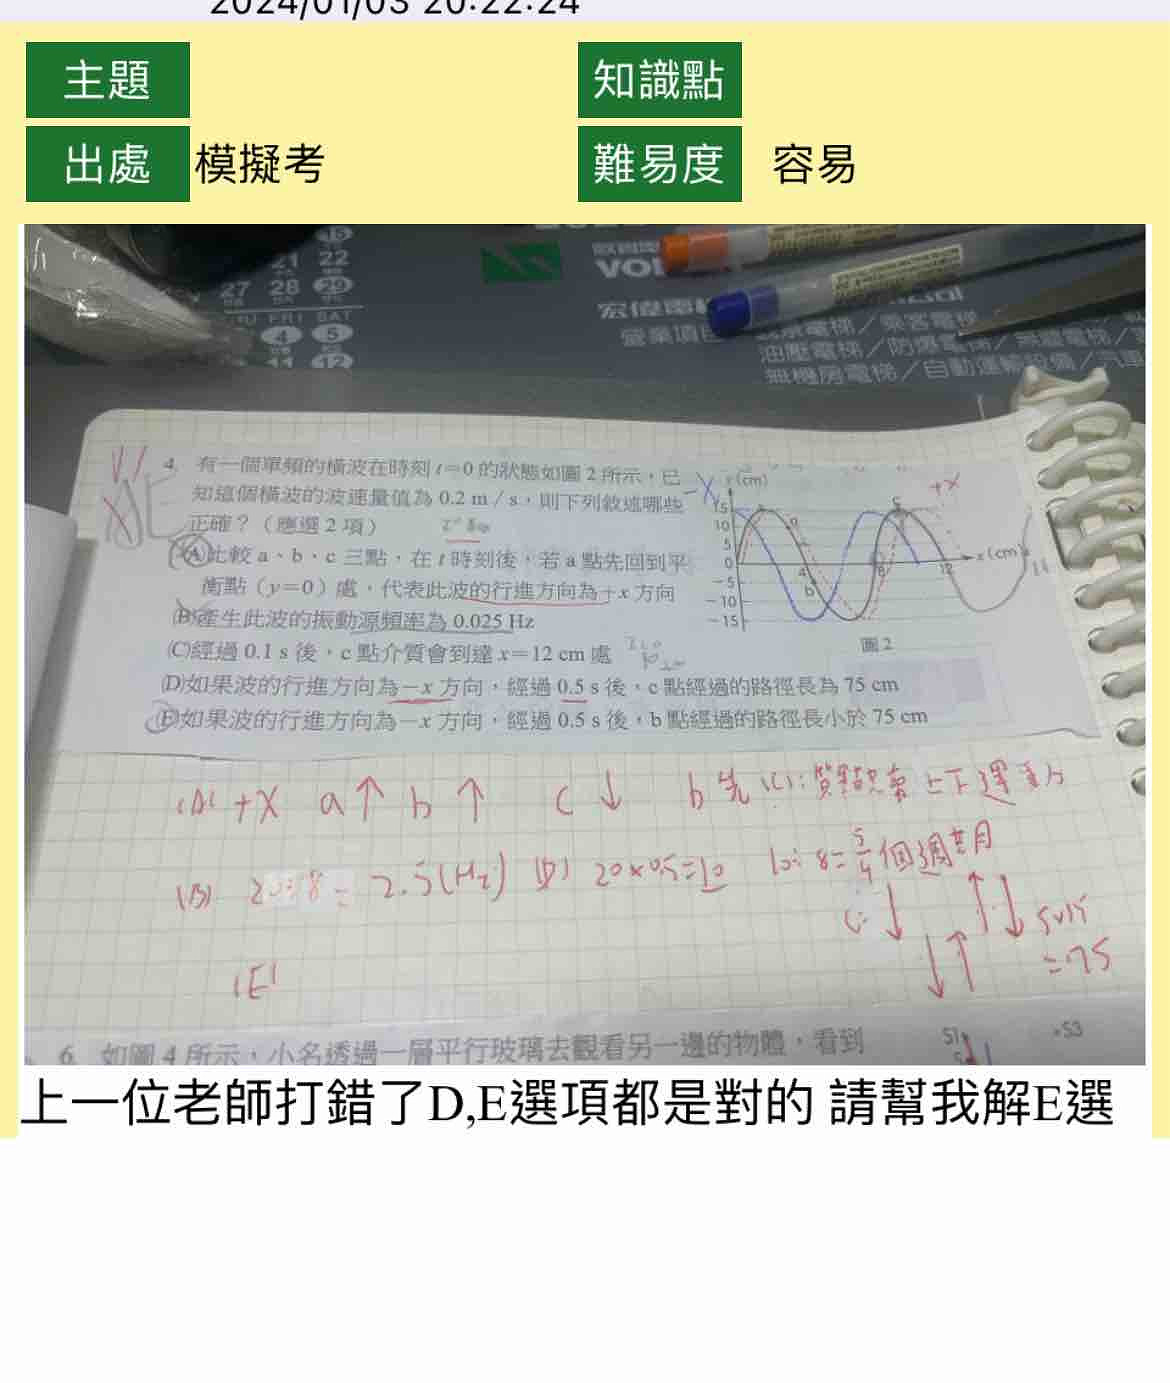 2024/01/03 20:22:24
主題
知識點
出處 模擬考
難易度 容易
15
21 22
27 28 29
FRI SAT
4 5
11 12
4. 有一個單頻的橫波在時刻 t=0 的狀態如圖 2 所示，已
知這個橫波的波速量值為 0.2 m / s，則下列敘述哪些
正確？（應選 2 項）
(A)比較 a、b、c 三點，在 t 時刻後，若 a 點先回到平
衡點（y=0）處，代表此波的行進方向為+x 方向
(B)產生此波的振動源頻率為 0.025 Hz
(C)經過 0.1 s 後，c 點介質會到達 x=12 cm 處
(D)如果波的行進方向為−x 方向，經過 0.5 s 後，c 點經過的路徑長為 75 cm
(E)如果波的行進方向為−x 方向，經過 0.5 s 後，b 點經過的路徑長小於 75 cm
y (cm)
15
10
5
0
−5
−10
−15
4
8
12
x (cm)
a
b
c
-X
+X
圖 2
(A) +X a↑ b↑ c↓ b先
(C):質點只會上下運動
(B) 20÷8= 2.5(Hz)
(D) 20×0.5=10 10÷8=5/4個週期
c: ↓ ↓↑ ↑↓ 5×15
=75
(E)
6. 如圖 4 所示，小名透過一層平行玻璃去觀看另一邊的物體，看到
S1
S3
上一位老師打錯了D,E選項都是對的 請幫我解E選